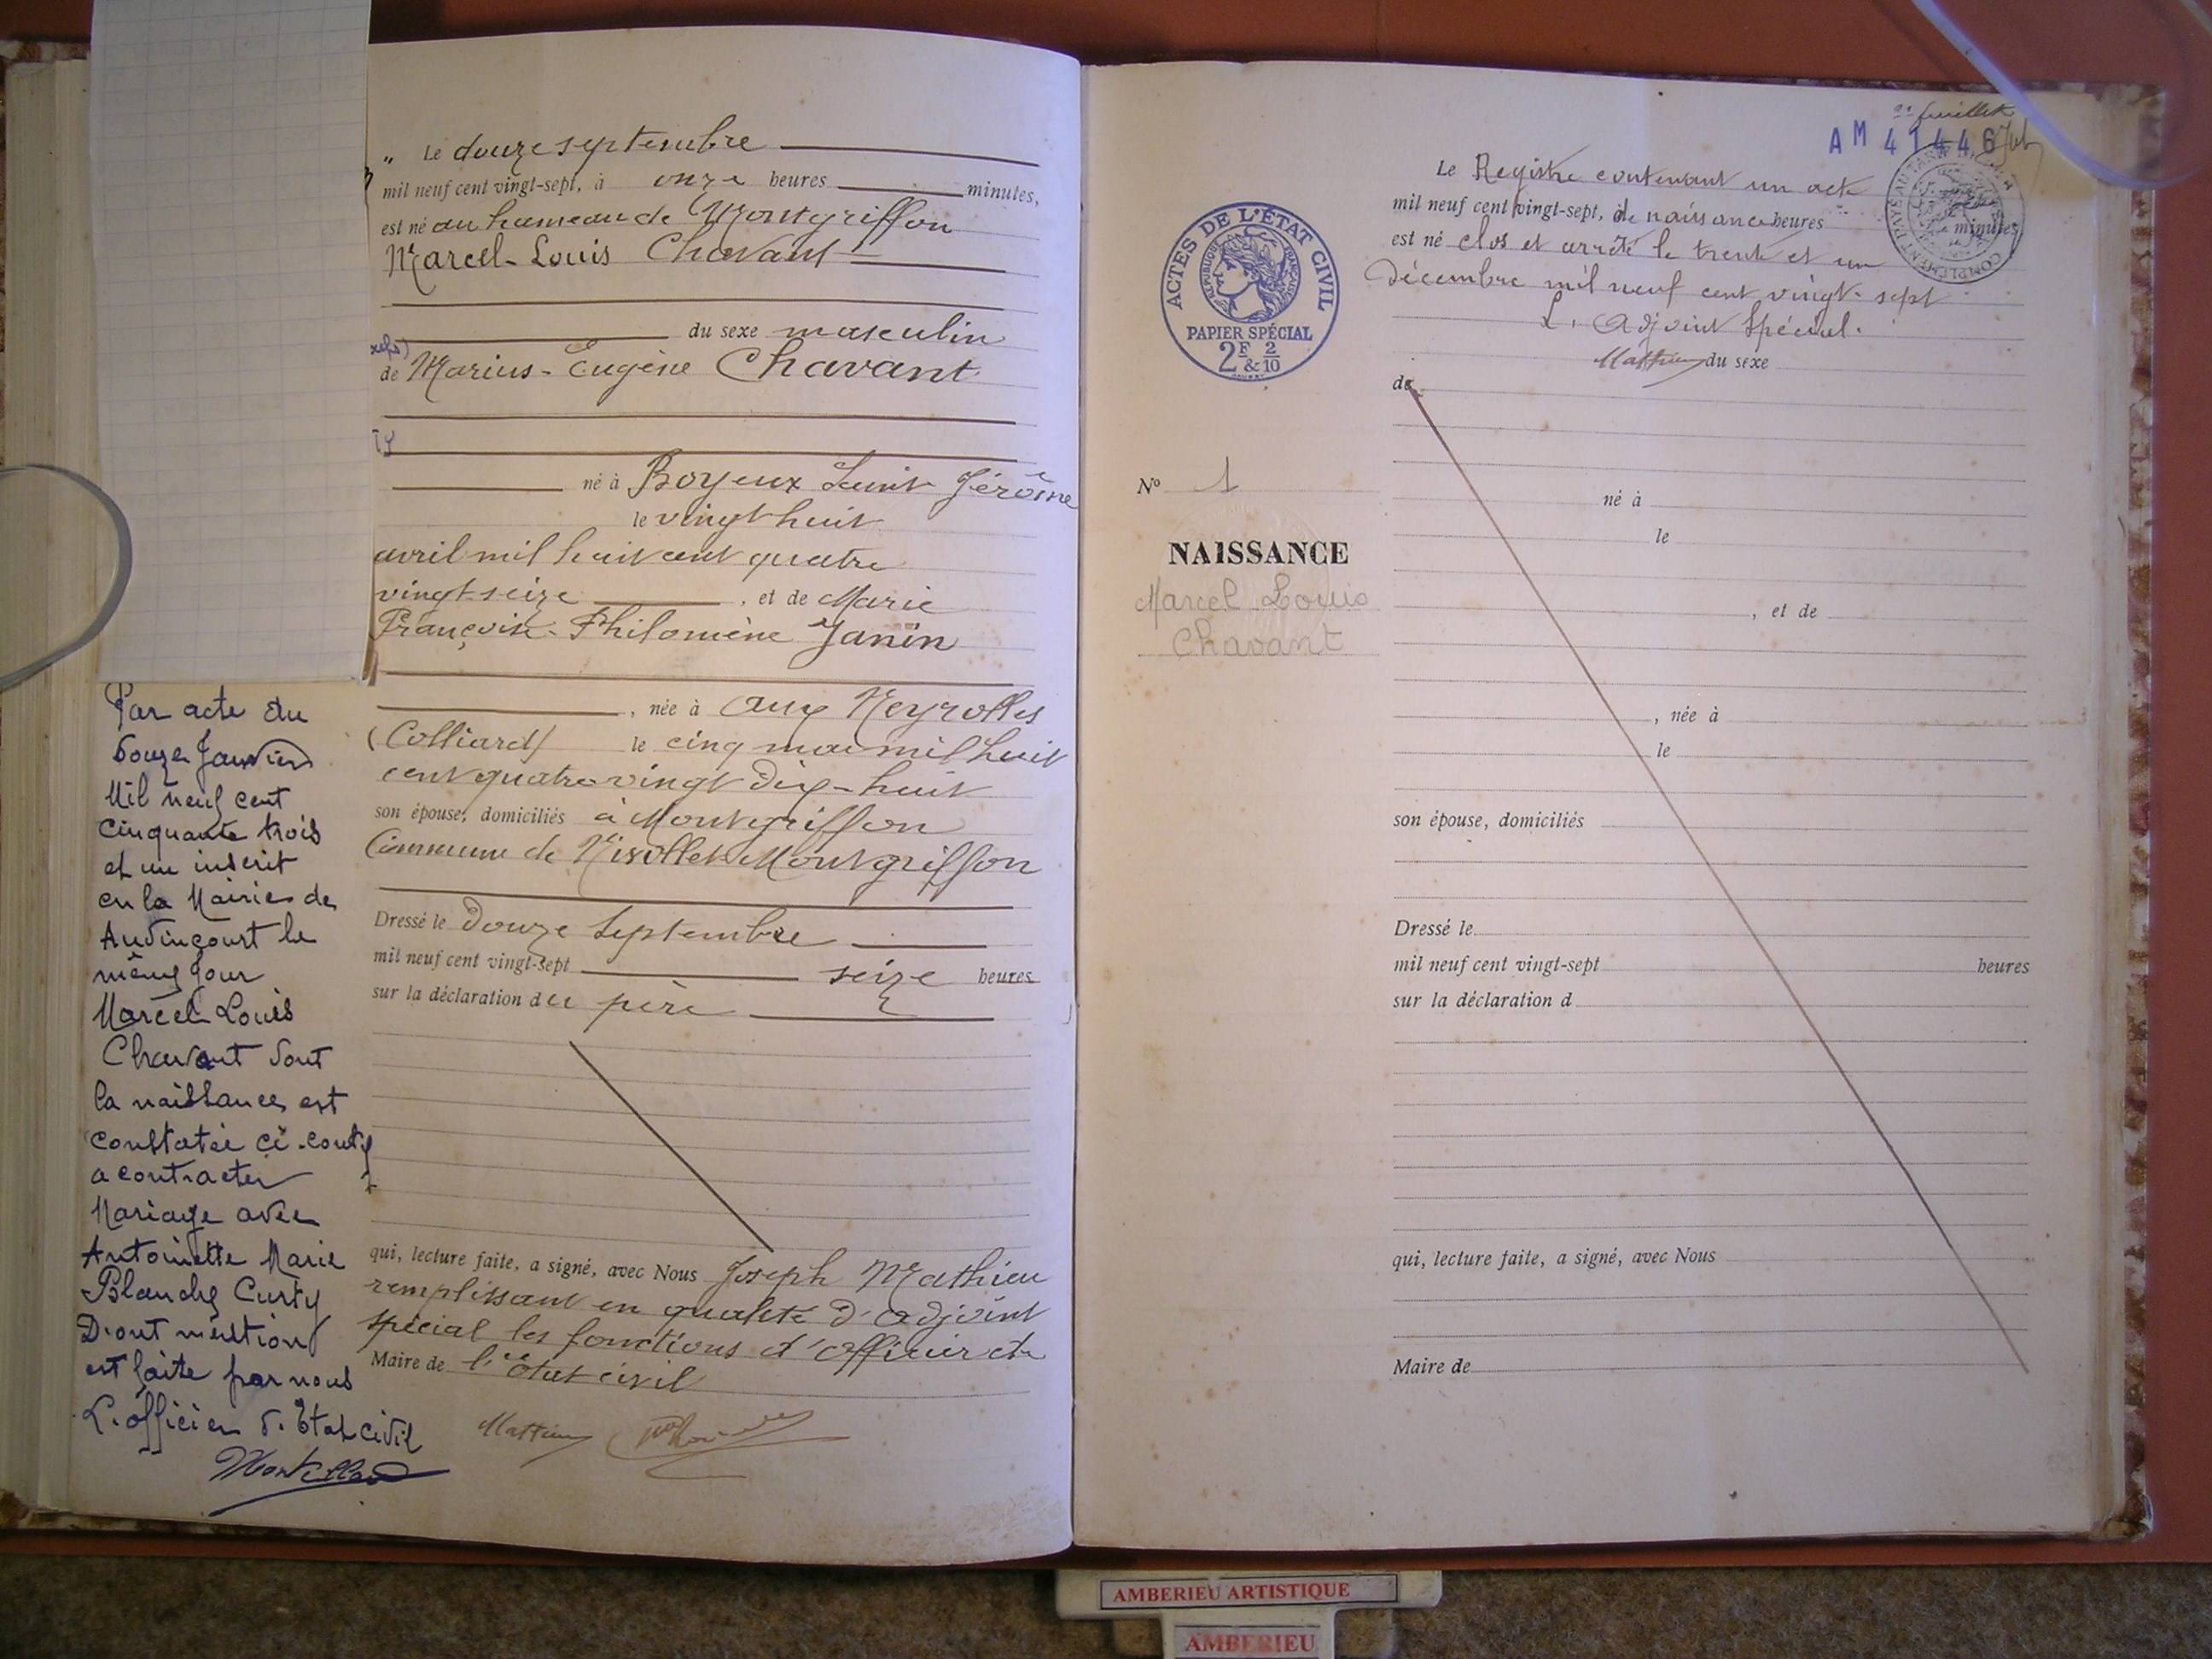 Le douze septembre
mil neuf cent vingt-sept, à onze heures minutes,
est né au hameau de Montgriffon
Marcel-Louis Chavant
du sexe masculin
de Marius-Eugène Chavant
né à Boyeux Saint Jérôme
le vingt huit
avril mil huit cent quatre
vingt seize, et de Marie
Françoise-Philomène Janin
, née à aux Neyrolles
(Colliard) le cinq mai mil huit
cent quatre vingt dix-huit
son épouse, domiciliés à Montgriffon
Commune de Nivollet-Montgriffon
Dressé le douze Septembre
mil neuf cent vingt-sept seize heures
sur la déclaration du père
qui, lecture faite, a signé, avec Nous Joseph Mathieu
remplissant en qualité d'adjoint
spécial les fonctions d'officier de
Maire de l'Etat civil
Mathieu
Par acte du
douze Janvier
Mil neuf cent
cinquante trois
et un inscrit
en la Mairie de
Audincourt le
même jour
Marcel Louis
Chavant dont
la naissance est
constatée ci-contre
a contracter
Mariage avec
Antoinette Marie
Blanche Curty
D'ont mention
est faite par nous
L'officier d'Etat civil
feuillet
AM 41446
Le Registre contenant un acte
mil neuf cent vingt-sept, de naissance heures minutes
est né clos et arrêté le trente et un
décembre mil neuf cent vingt-sept
L'Adjoint Spécial.
Mathieu du sexe
de
ACTES DE L'ÉTAT CIVIL
RÉPUBLIQUE FRANÇAISE
PAPIER SPÉCIAL
2F & 2/10
No 1
NAISSANCE
Marcel Louis
Chavant
né à
le
, et de
, née à
le
son épouse, domiciliés
Dressé le
mil neuf cent vingt-sept heures
sur la déclaration d
qui, lecture faite, a signé, avec Nous
Maire de
AMBERIEU ARTISTIQUE
AMBERIEU